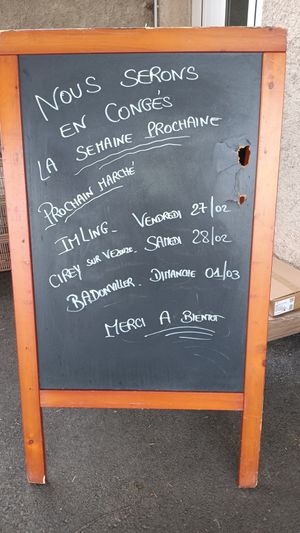 NOUS SERONS
EN CONGÉS
LA SEMAINE PROCHAINE
PROCHAIN MARCHÉ
IMLING_ VENDREDI 27/02
CIREY SUR VEZOUZE_ SAMEDI 28/02
BADONVILLER_ DIMANCHE 01/03
MERCI A BIENTOT